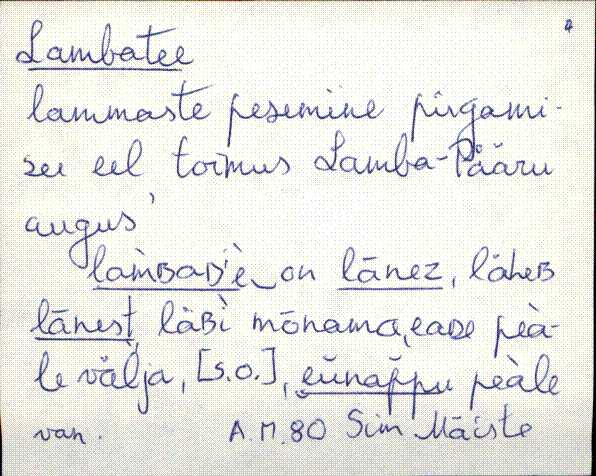 Lambatee
lammaste pesemine pügami-
se eel toimus Lamba-Pääru
augus,
làmʙaᴅ'è on lānez, läheʙ
lānest, läʙì mōnama, eaᴅe peà-
le välja, [s.o.], eŭnap̆pu peàle
van. A.M. 80 Siim Mäiste